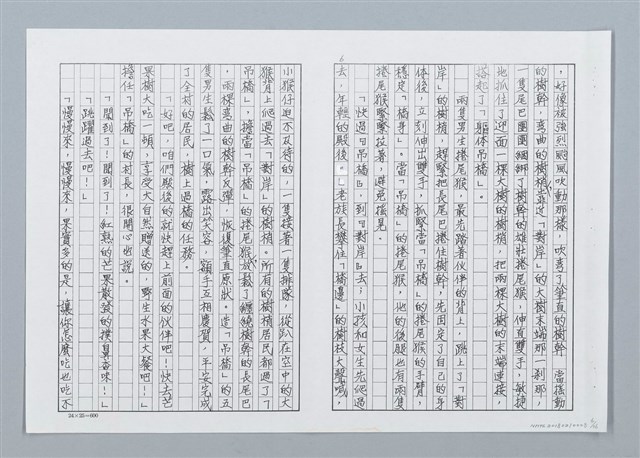 ，好像被強烈颶風吹動那樣，吹彎了筆直的樹幹，當搖動
的樹幹，彎曲的樹梢靠近「對岸」的大樹末端那一剎那，
一隻尾巴團團綑綁了樹幹的雄壯捲尾猴，伸直雙手，敏捷
地抓住了迎面一棵大樹的樹梢，把兩棵大樹的末端連接，
搭起了「軀体吊橋」。
兩隻男生捲尾猴，最先踏著伙伴的背上，跳上了「對
岸」的樹梢，趕緊把長尾巴捲住樹幹，先固定了自己的身
体後，立刻伸出雙手，抓緊當「吊橋」的捲尾猴的手臂，
穩定「橋身」，當「吊橋」的捲尾猴，他的後腿也有兩隻
捲尾猴緊緊拉著，避免搖晃。
「快過『吊橋』，到『對岸』去，小孩和女生先爬過
去，年輕的殿後。」老族長攀住「橋邊」的樹枝大聲喊，
6
小猴仔迫不及待的，一隻接著一隻排隊，從趴在空中的大
猴背上爬過去「對岸」的樹梢。所有的樹梢居民都過了「
吊橋」，擔當「吊橋」的捲尾猴放鬆了纏繞樹幹的長尾巴
，兩棵彎曲的樹幹反彈，恢復筆直原狀。造「吊橋」的五
隻男生鬆了一口氣，露出笑容，額手互相慶賀，平安完成
了全村的居民，樹上過橋的任務。
「好吧，咱們殿後的就快趕上前面的伙伴吧！快去芒
果樹大吃一頓，享受大自然贈送的，野生水果大餐吧！」
擔任「吊橋」的村長，很開心地說。
「聞到了！聞到了！紅熟的芒果散發的撲鼻香味！」
「跳躍過去吧！」
「慢慢來，慢慢來，果實多的是，讓你怎麼吃也吃不
24×25=600